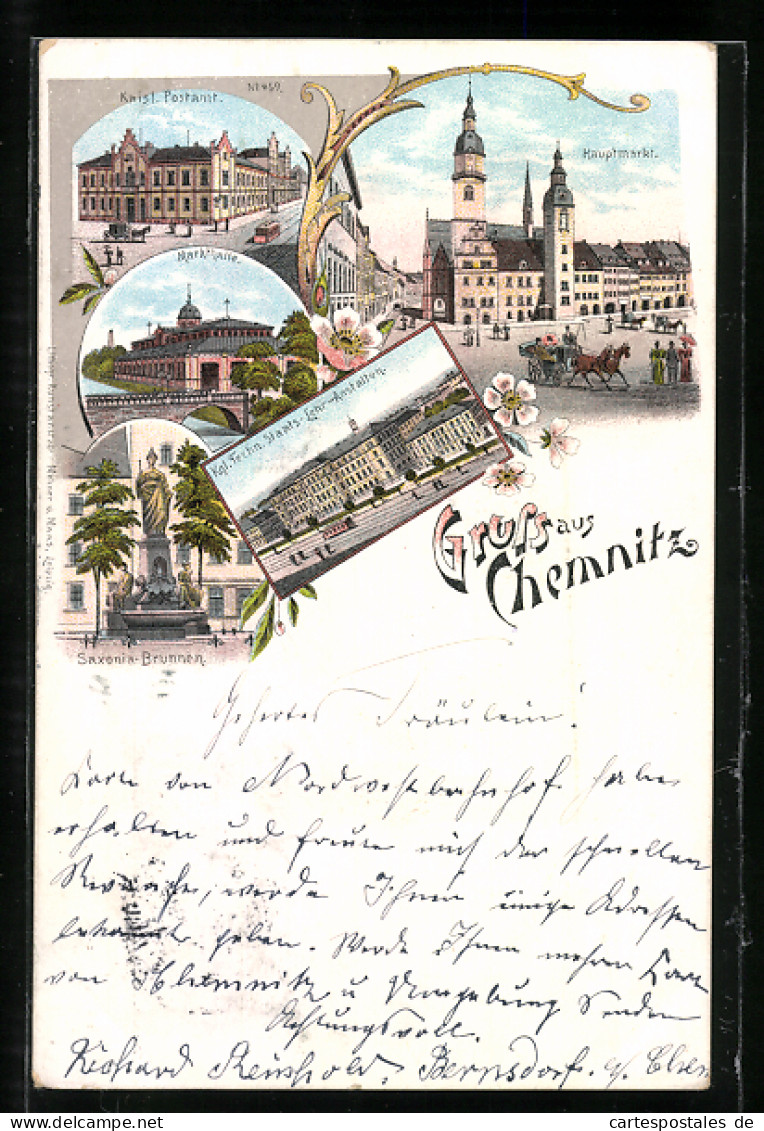 Kaisl. Postamt.
N: 459.
Hauptmarkt.
Markthalle.
Kgl. Techn. Staats-Lehr-Anstalten.
Saxonia-Brunnen.
Gruss aus
Chemnitz
Geehrtes Fräulein!
Karte von Nordwestbahnhof habe
erhalten und freue mich der schnellen
werde Ihnen einige Adressen
bekannt geben. Werde Ihnen mehre Karte
von Chemnitz u Umgebung senden
Achtungsvoll.
Richard Reinhold, Bernsdorf. b/ Chem
cartespostales de